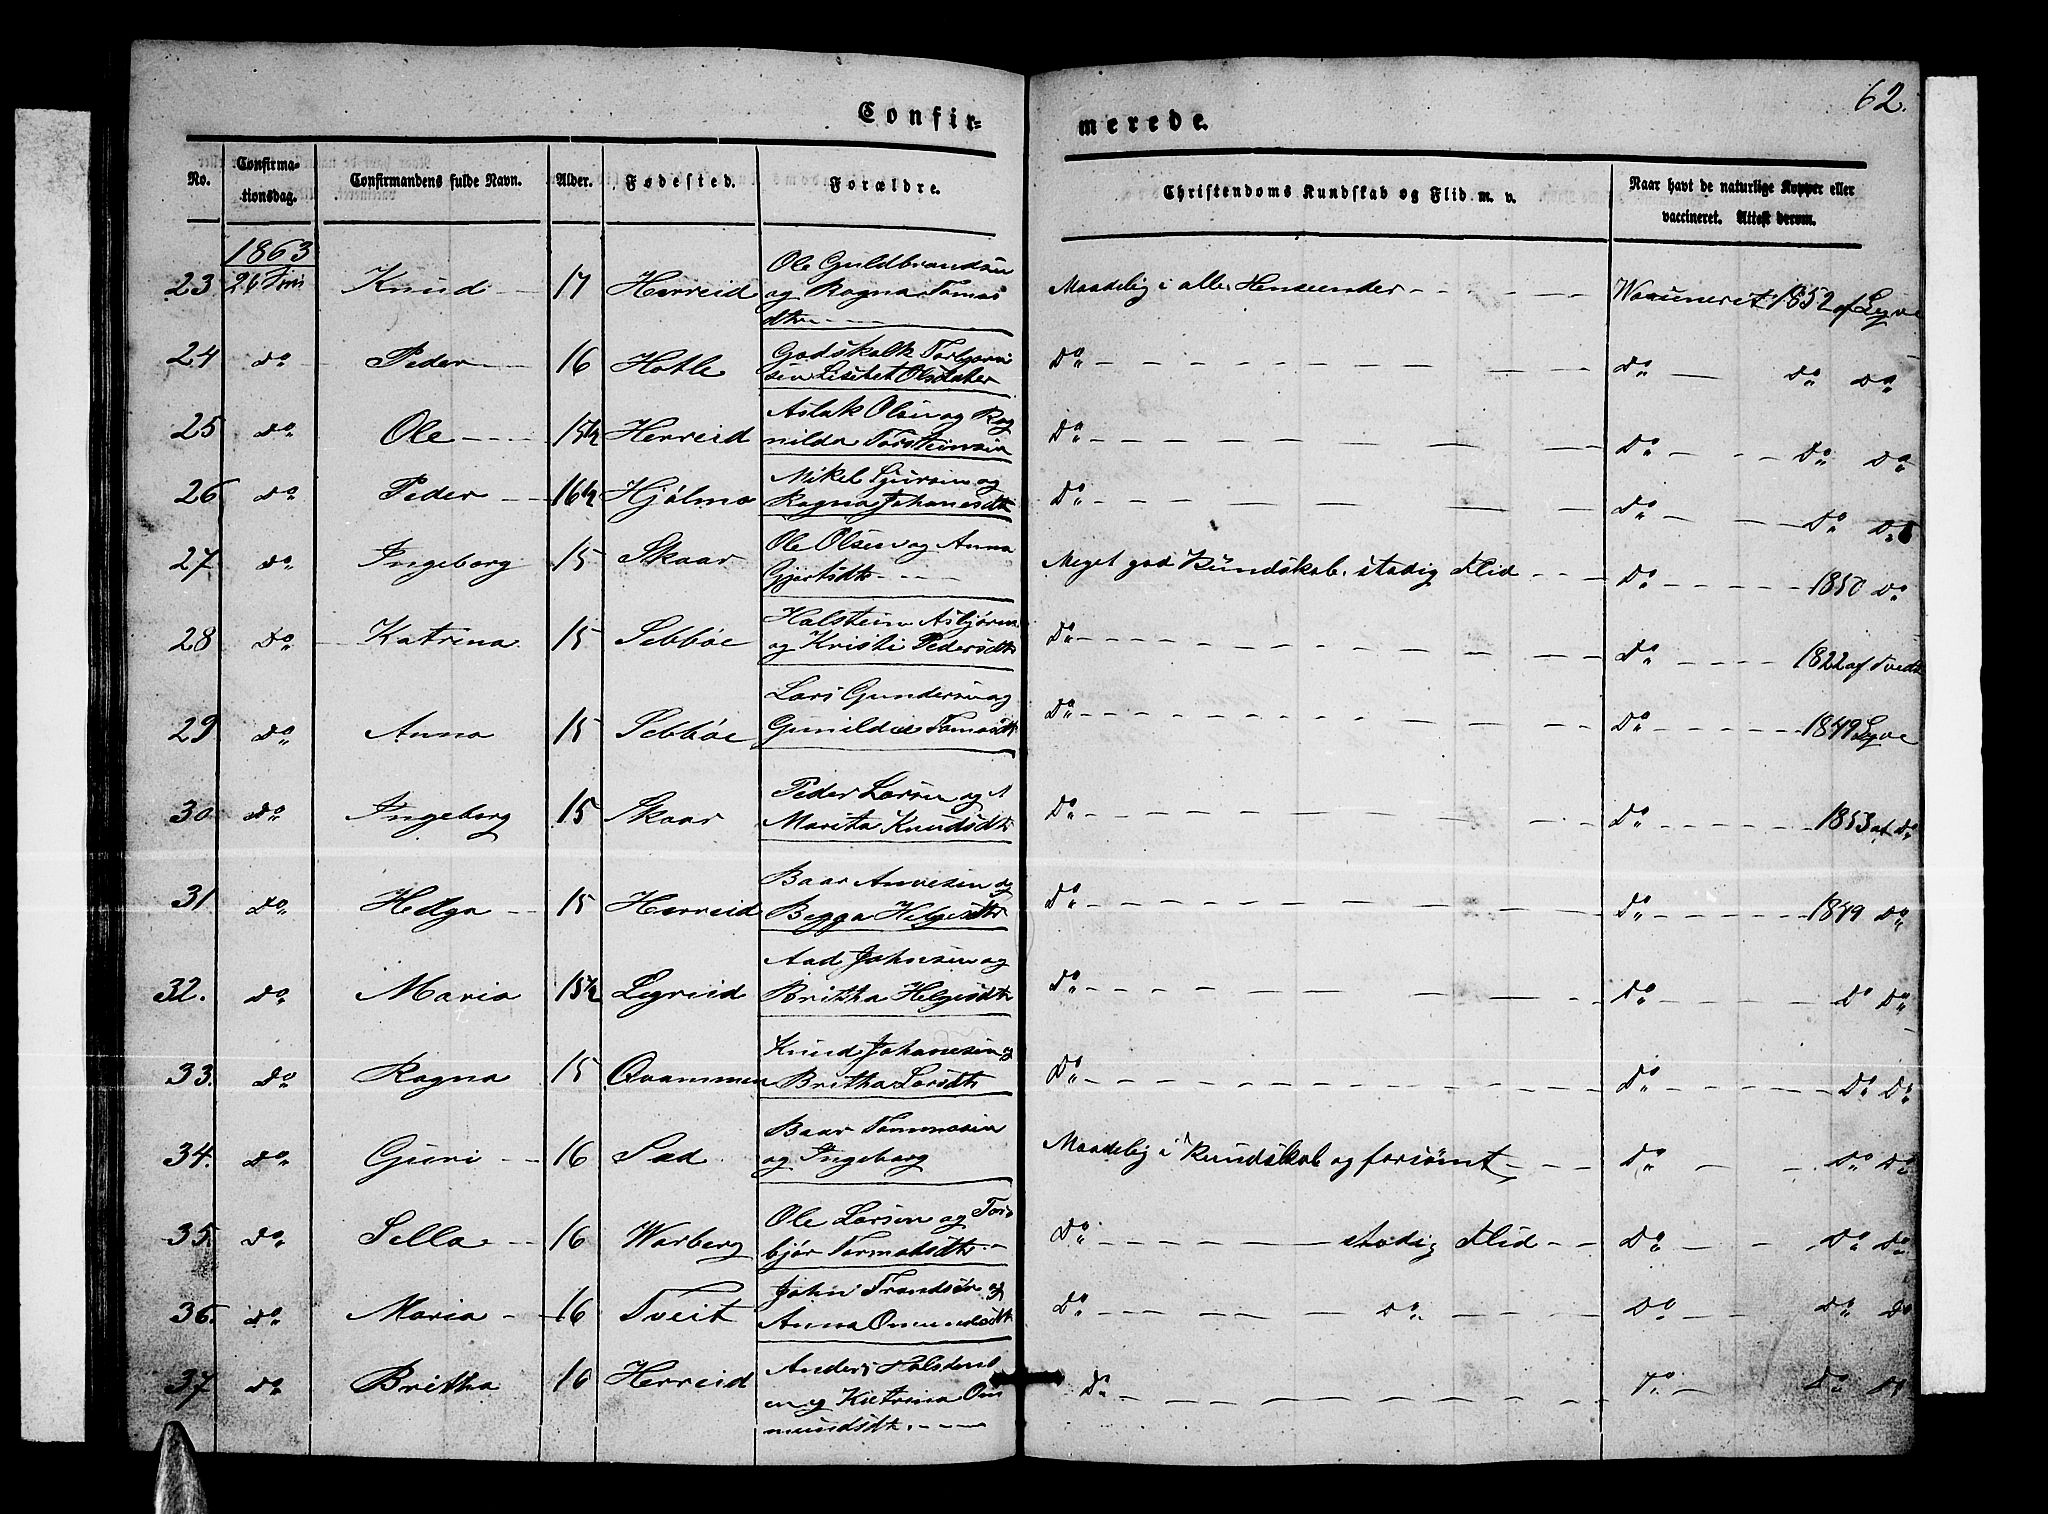 62.
Confir-
merede.
No.
Confirma-
tionsdag.
Confirmandens fulde Navn.
Alder.
Fødested.
Forældre.
Christendoms Kundskab og Flid m. v.
Naar havt de naturlige Kopper eller
vaccineret. Attest derom.
1863
Ole Guldbrandsen
23 26 Knud 17 Herreid og Ragna Tomas Maadelig i alle Henseender Waxuneret 1852 af Lyve
dtr
24 do Peder 16 Hotle Godskalk Torbjørn do do do do
sen Lisibet Olsdater
Aslak Olsen og Rag
25 do Ole 15½ Herreid nilda Torsteinsen do do do do
Mikel Sjursen og
26 do Peder 16½ Hjølmo Ragna Johanesdtr do do do do
27 do Ingeborg 15 Skaar Ole Olsen og Anna Meget god Kundskab, stadig Flid do 1850 do
Gjertsdtr
Halstein Asbjørn
28 do Katrina 15 Sebbøe og Kristi Pedersdtr do do 1822 af Tvedt
Lars Gundersen og
29 do Anna 15 Sebbøe Gunilda Tomasdtr do do 1849 Lyve
Peder Larsen og
30 do Ingeborg 15 Skaar Marita Knudsdtr do do 1853 af do
Baar Arnesen og
31 do Helga 15 Herreid Begga Helgesdtr do do 1849 do
Aad Johnsen og
32. do Maria 15½ Legreid Britha Helgesdtr do do do do
Knud Johanesen og
33. do Ragna 15 Qvammen Britha Larsdtr do do do do
Baar Tommasen
34. do Guri 16 Sæd og Ingeborg Maadelig i Kundskab og forsømt do do do
Ole Larsen og Tor
35. do Sella 16 Warberg bjør Tormodsdtr do stadig Flid do do do
John Trondsen og
36. do Maria 16 Tveit Anna Omundsdtr do do do do do
Anders Halstens
37 do Britha 16 Herreid en og Katrina Om do do do do
mundsdtr.